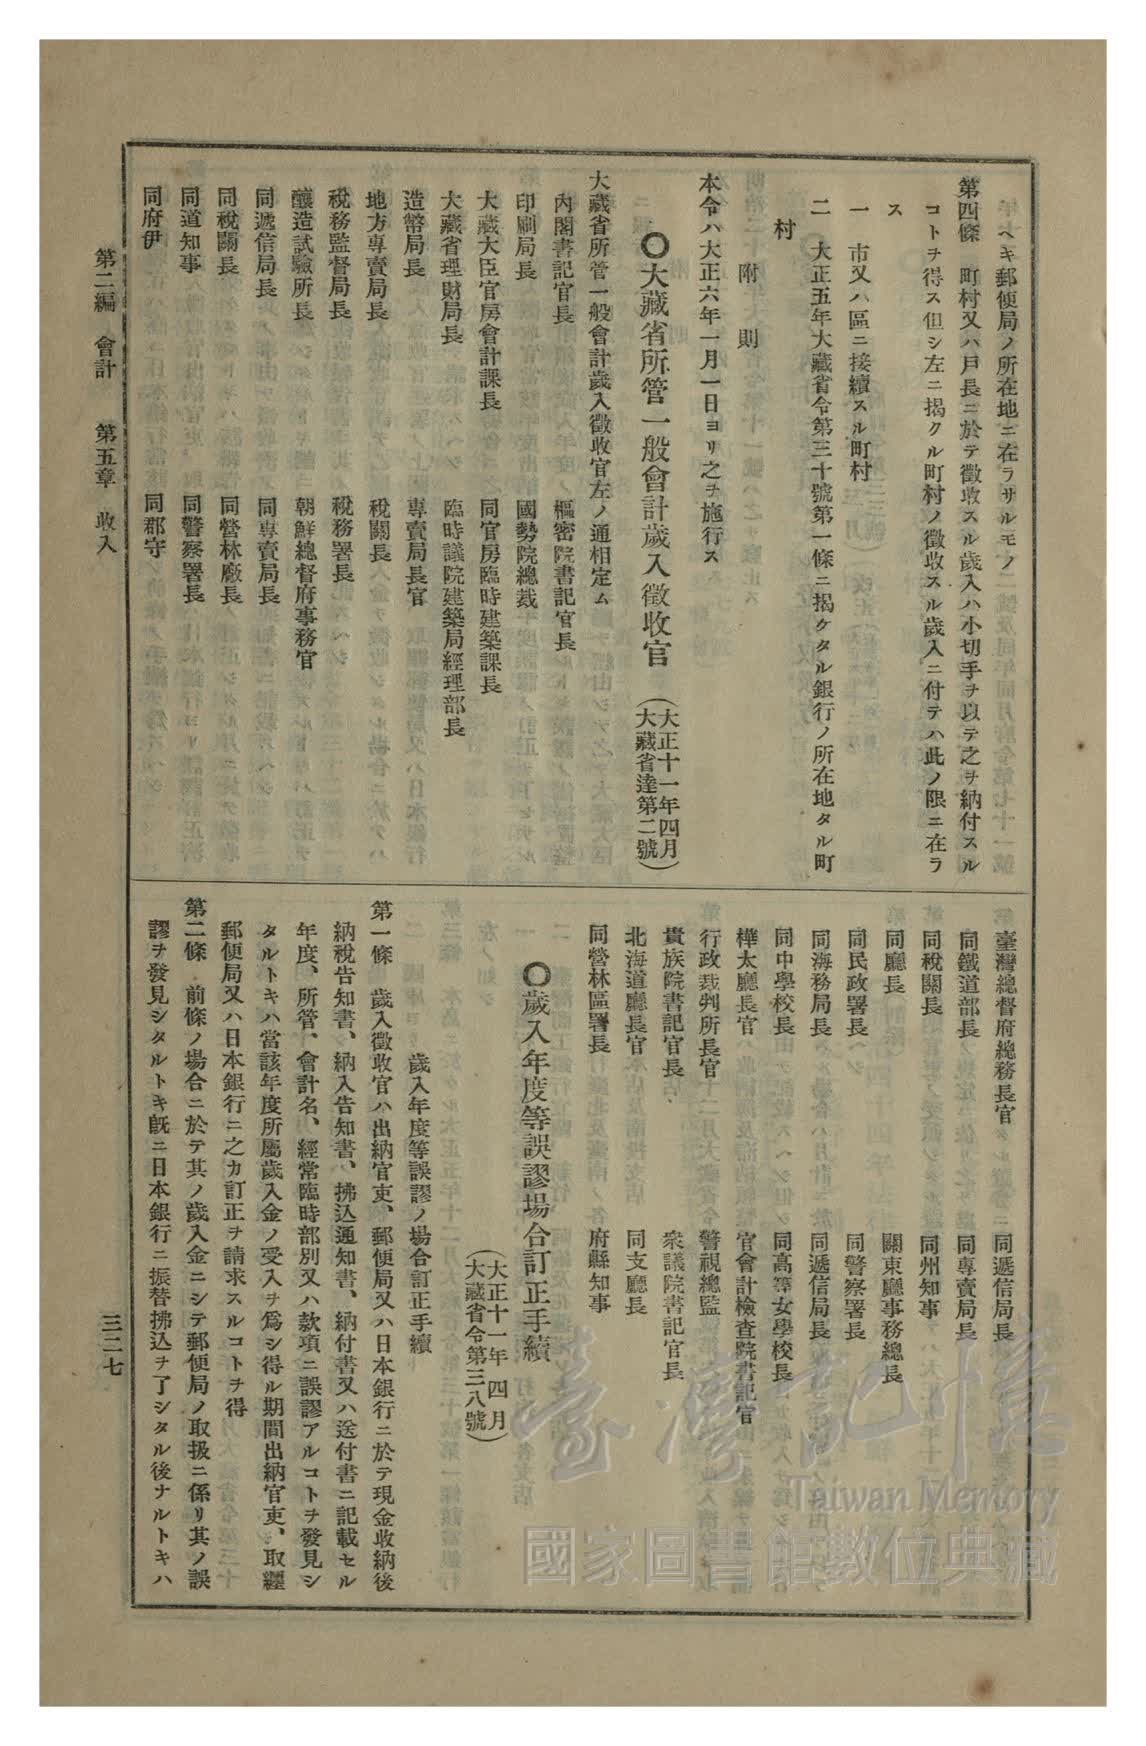 ヘキ郵便局ノ所在地ニ在ラサルモノ
第四條　町村又ハ戸長ニ於テ徵收スル歲入ハ小切手ヲ以テ之ヲ納付スル
コトヲ得ス但シ左ニ揭クル町村ノ徵收スル歲入ニ付テハ此ノ限ニ在ラ
ス
一　市又ハ區ニ接續スル町村
二　大正五年大藏省令第三十號第一條ニ揭ケタル銀行ノ所在地タル町
村
附則
本令ハ大正六年一月一日ヨリ之ヲ施行ス
〇大藏省所管一般會計歲入徵收官（大正十一年四月
大藏省達第二號）
大藏省所管一般會計歲入徵收官左ノ通相定ム
內閣書記官長　樞密院書記官長
印刷局長　國勢院總裁
大藏大臣官房會計課長　同官房臨時建築課長
大藏省理財局長　臨時議院建築局經理部長
造幣局長　專賣局長官
地方專賣局長　稅關長
稅務監督局長　稅務署長
釀造試驗所長　朝鮮總督府事務官
同遞信局長　同專賣局長
同稅關長　同營林廠長
同道知事　同警察署長
同府伊　同郡守
臺灣總督府總務長官　同遞信局長
同鐵道部長　同專賣局長
同稅關長　同州知事
同廳長　關東廳事務總長
同民政署長　同警察署長
同海務局長　同遞信局長
同中學校長　同高等女學校長
樺太廳長官　官會計檢查院書記官
行政裁判所長官　警視總監
貴族院書記官長　衆議院書記官長
北海道廳長官　同支廳長
同營林區署長　府縣知事
〇歲入年度等誤謬場合訂正手續
（大正十一年四月
大藏省令第三八號）
歲入年度等誤謬ノ場合訂正手續
第一條　歲入徵收官ハ出納官吏、郵便局又ハ日本銀行ニ於テ現金收納後
納稅告知書、納入告知書、拂込通知書、納付書又ハ送付書ニ記載セル
年度、所管、會計名、經常臨時部別又ハ款項ニ誤謬アルコトヲ發見シ
タルトキハ當該年度所屬歲入金ノ受入ヲ爲シ得ル期間出納官吏、取纏
郵便局又ハ日本銀行ニ之カ訂正ヲ請求スルコトヲ得
第二條　前條ノ場合ニ於テ其ノ歲入金ニシテ郵便局ノ取扱ニ係リ其ノ誤
謬ヲ發見シタルトキ旣ニ日本銀行ニ振替拂込ヲ了シタル後ナルトキハ
第二編　會計　第五章　收入
三二七
臺灣記憶
Taiwan Memory
國家圖書館數位典藏